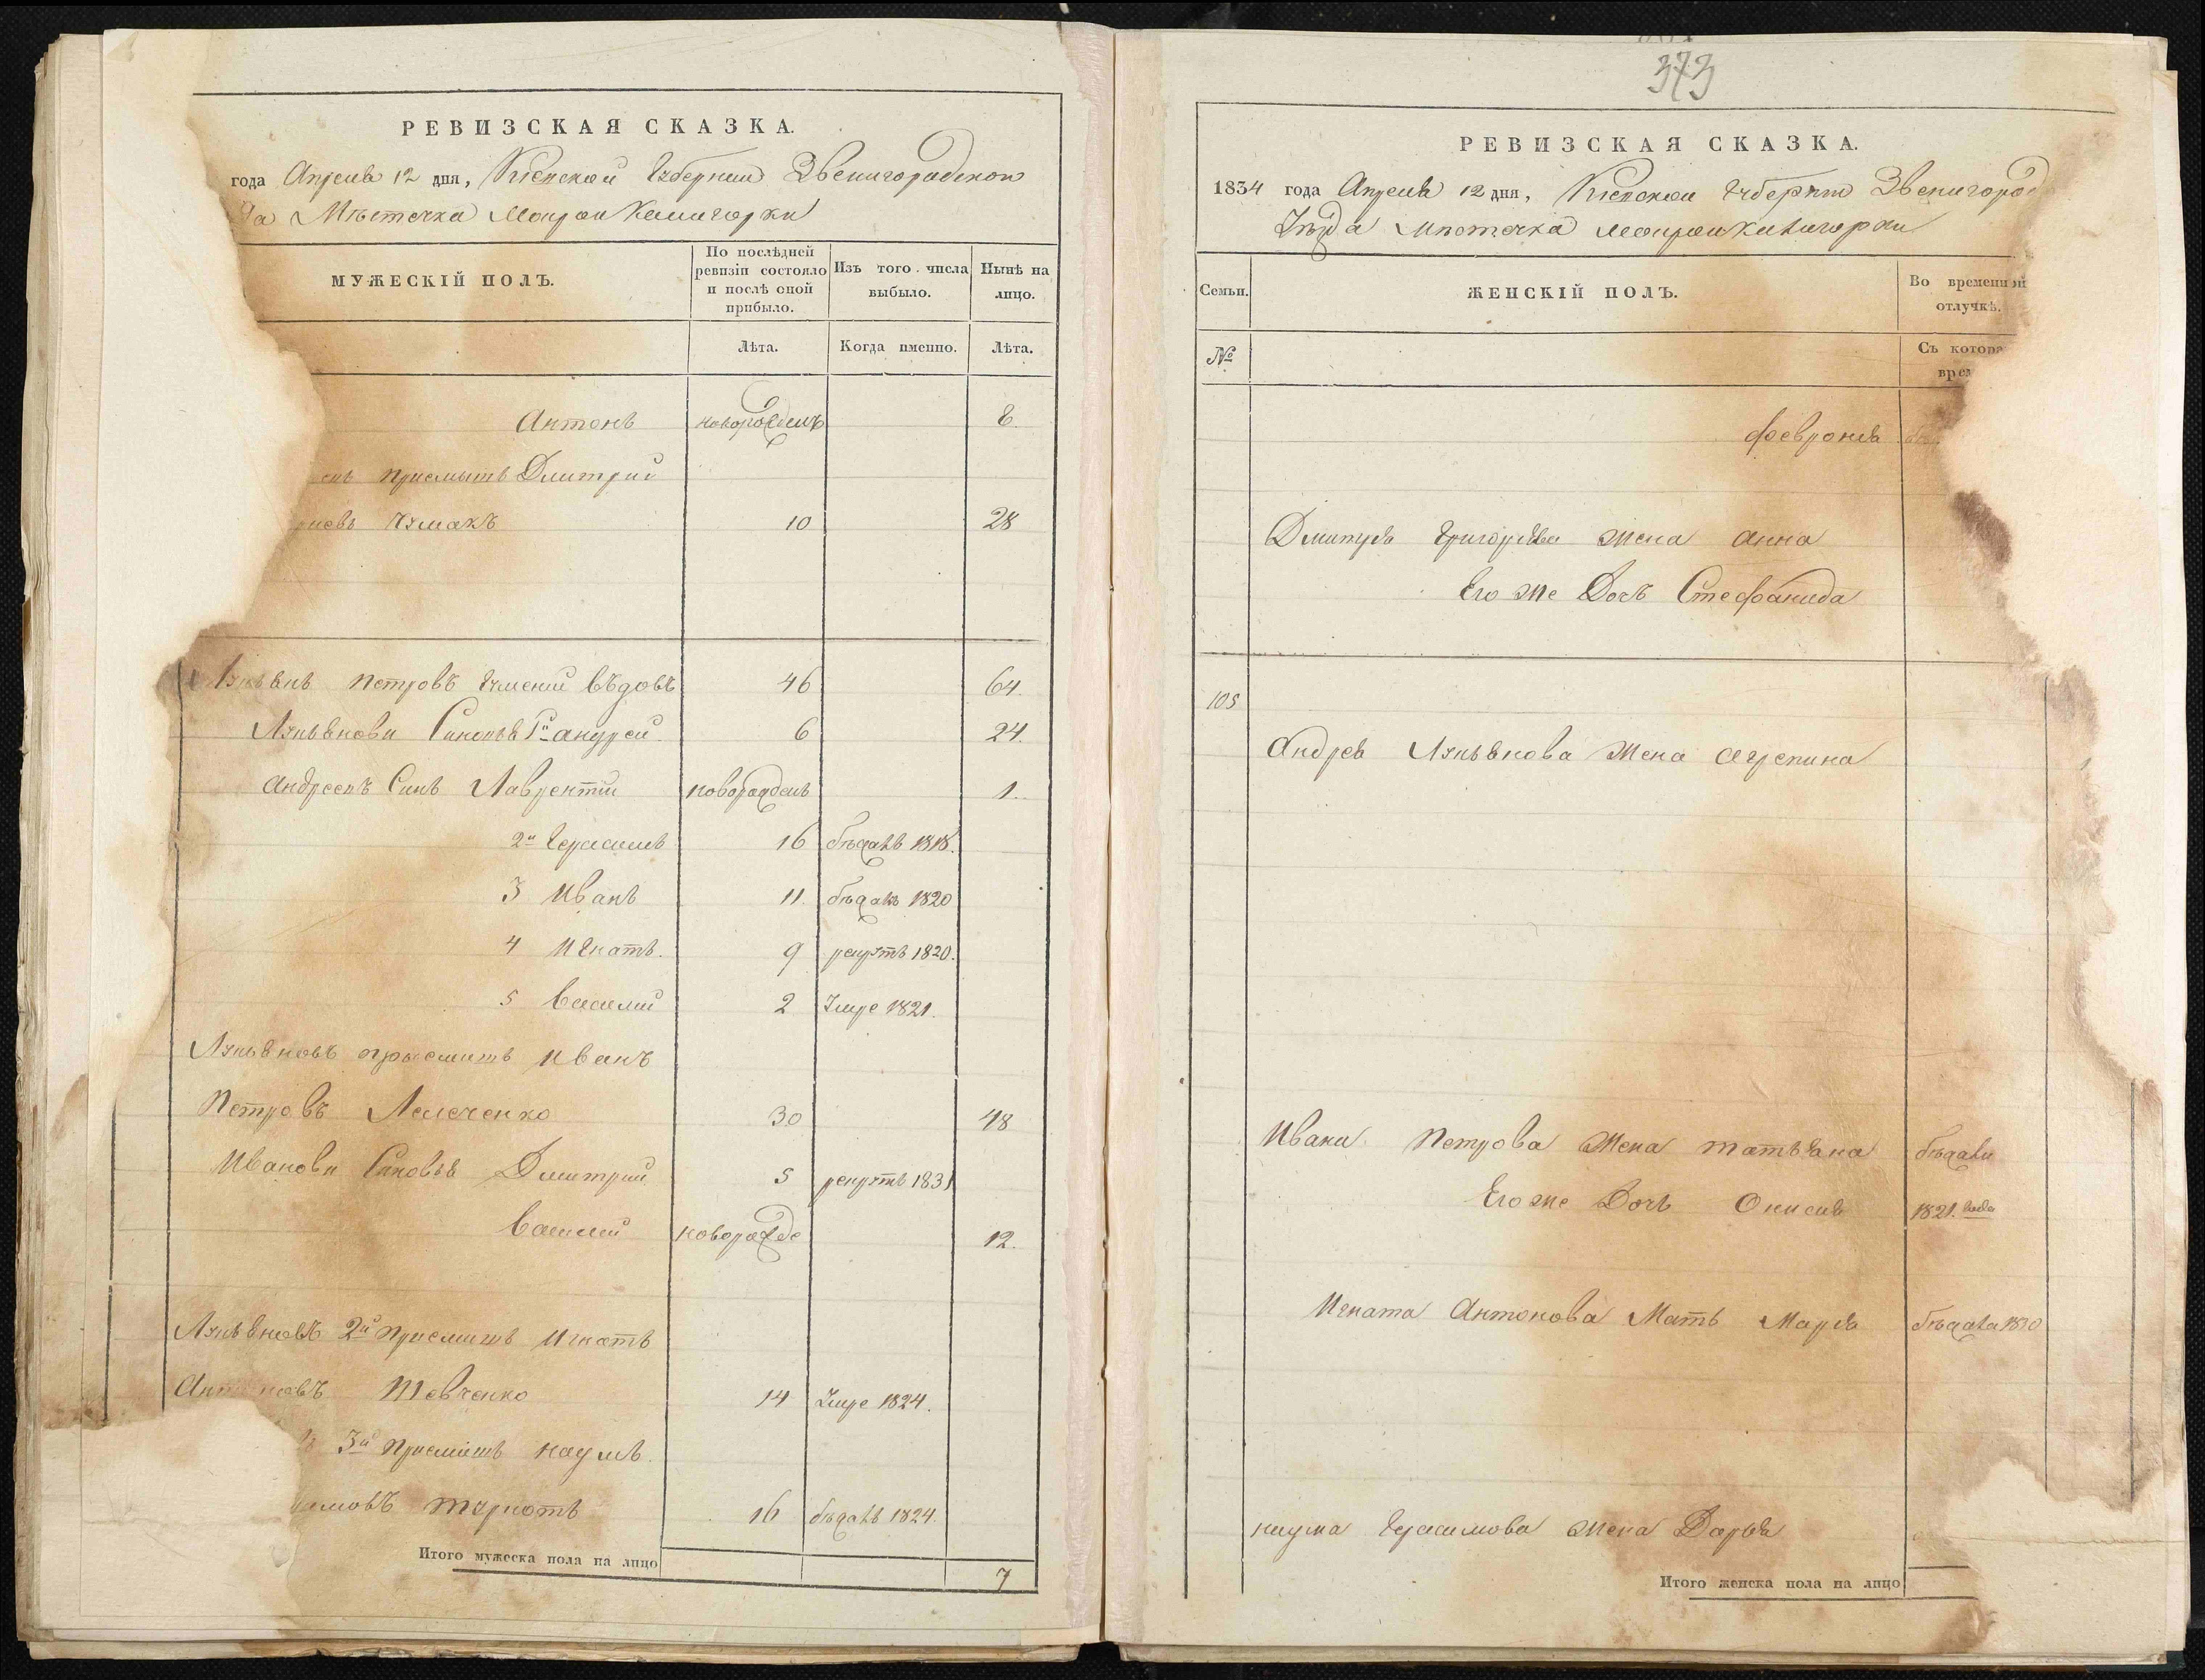 РЕВИЗСКАЯ СКАЗКА.
года Апреля 12 дня, Кіевской Губерніи Звенигородской
Мѣстечка Мокрои Калигорки
МУЖЕСКІЙ ПОЛЪ.
По послѣдней ревизіи состояло и послѣ оной прибыло.
Изъ того числа выбыло.
Нынѣ на лицо.
Лѣта.
Когда именно.
Лѣта.
Антонъ новорожденъ 8
приемышъ Дмитрий
Чумакъ 10 28
Лукьянъ Петровъ вѣдовъ 46 64.
Лукьянови Синовья 1й андрей 6 24.
андреевъ Синъ Лаврентий новорожденъ 1.
2й Герасимъ 16 бѣжалъ 1818.
3 Иванъ 11. бѣжалъ 1820
4 Игнатъ. 9 рекрутъ 1820.
5 Василий 2 Умре 1821.
Лукьяновъ приемишъ Иванъ
Петровъ 30 48
Иванови Синовья Дмитрий 5 рекрутъ 1831
Василий новорожде 12.
Лукьяновъ 2й Приемишъ Игнатъ
Антоновъ Шевченко 14 Умре 1824.
3й Приемишъ Наумъ.
16 бѣжалъ 1824.
Итого мужеска пола на лицо 7
373
РЕВИЗСКАЯ СКАЗКА.
1834 года Апреля 12 дня, Кіевской Губерніи Звенигород
Уѣзда Мѣстечка Мокрои Калигорки
Семьи.
ЖЕНСКІЙ ПОЛЪ.
Во временной отлучкѣ.
№
Съ котора
врем
Феврония
Дмитрия Григорьева Жена Анна
Его Же Дочь Стефанида
105
Андрея Лукьянова Жена Агрепина
Ивана Петрова Жена Татьяна бѣжали
Его же Дочь Онисия 1821. года
Игната Антонова Мать Мария бѣжала 1820
Наума Герасимова Жена Дарья
Итого женска пола на лицо